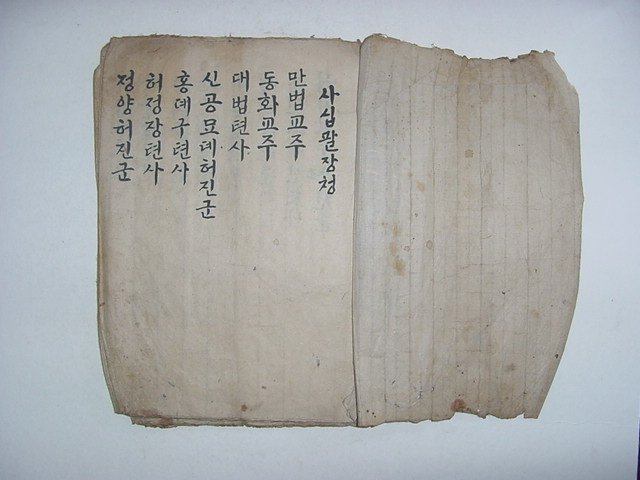 사십팔장청
만법교주
동화교주
대법텬사
신공묘뎨허진군
홍뎨구텬사
허정장텬사
정양허진군